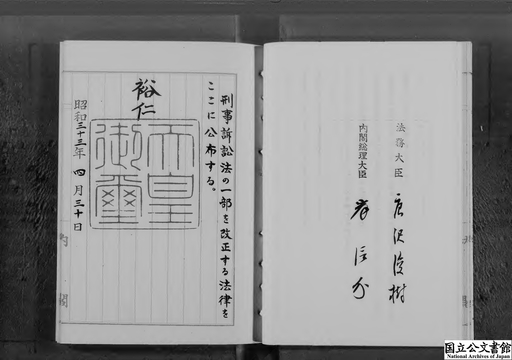 刑事訴訟法の一部を改正する法律を
ここに公布する。
裕仁
天皇
御璽
昭和三十三年四月三十日
法務大臣 唐沢俊樹
内閣総理大臣 岸信介
内閣
国立公文書館
National Archives of Japan